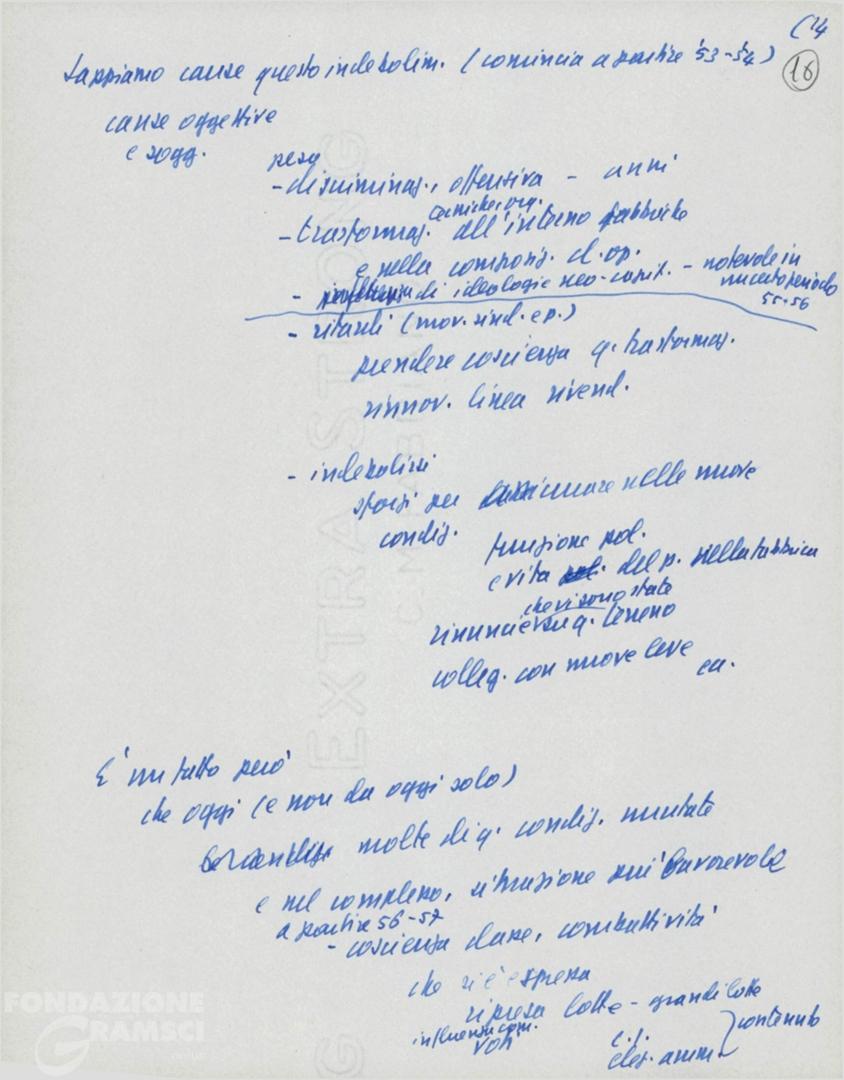 (14
18
Sappiamo cause questo indebolim. (comincia a partire '53-'54)
cause oggettive
e sogg.
peso
- discriminaz., offensiva - anni
tecniche, org.
- trasformaz. all'interno fabbriche
e nella composiz. cl. op.
- di ideologie neo-capit. - notevole in
un certo periodo
55-56
- ritardi (mov. sind. e p.)
prendere coscienza q. trasformaz.
rinnov. linea rivend.
- indebolirsi
sforzi per assicurare nelle nuove
condiz.
funzione pol.
e vita pol. del p. nella fabbrica
che vi sono state
rinuncie su q. terreno
colleg. con nuove leve ecc.
È un fatto però
che oggi (e non da oggi solo)
molte di q. condiz. mutate
e nel complesso, situazione più favorevole
a partire 56-57
- coscienza classe, combattività
che si è espressa
ripresa lotte - grandi lotte
influenza com.
voti
c.i.
elez. amm.
contenuto
EXTRA STRONG
FONDAZIONE
GRAMSCI